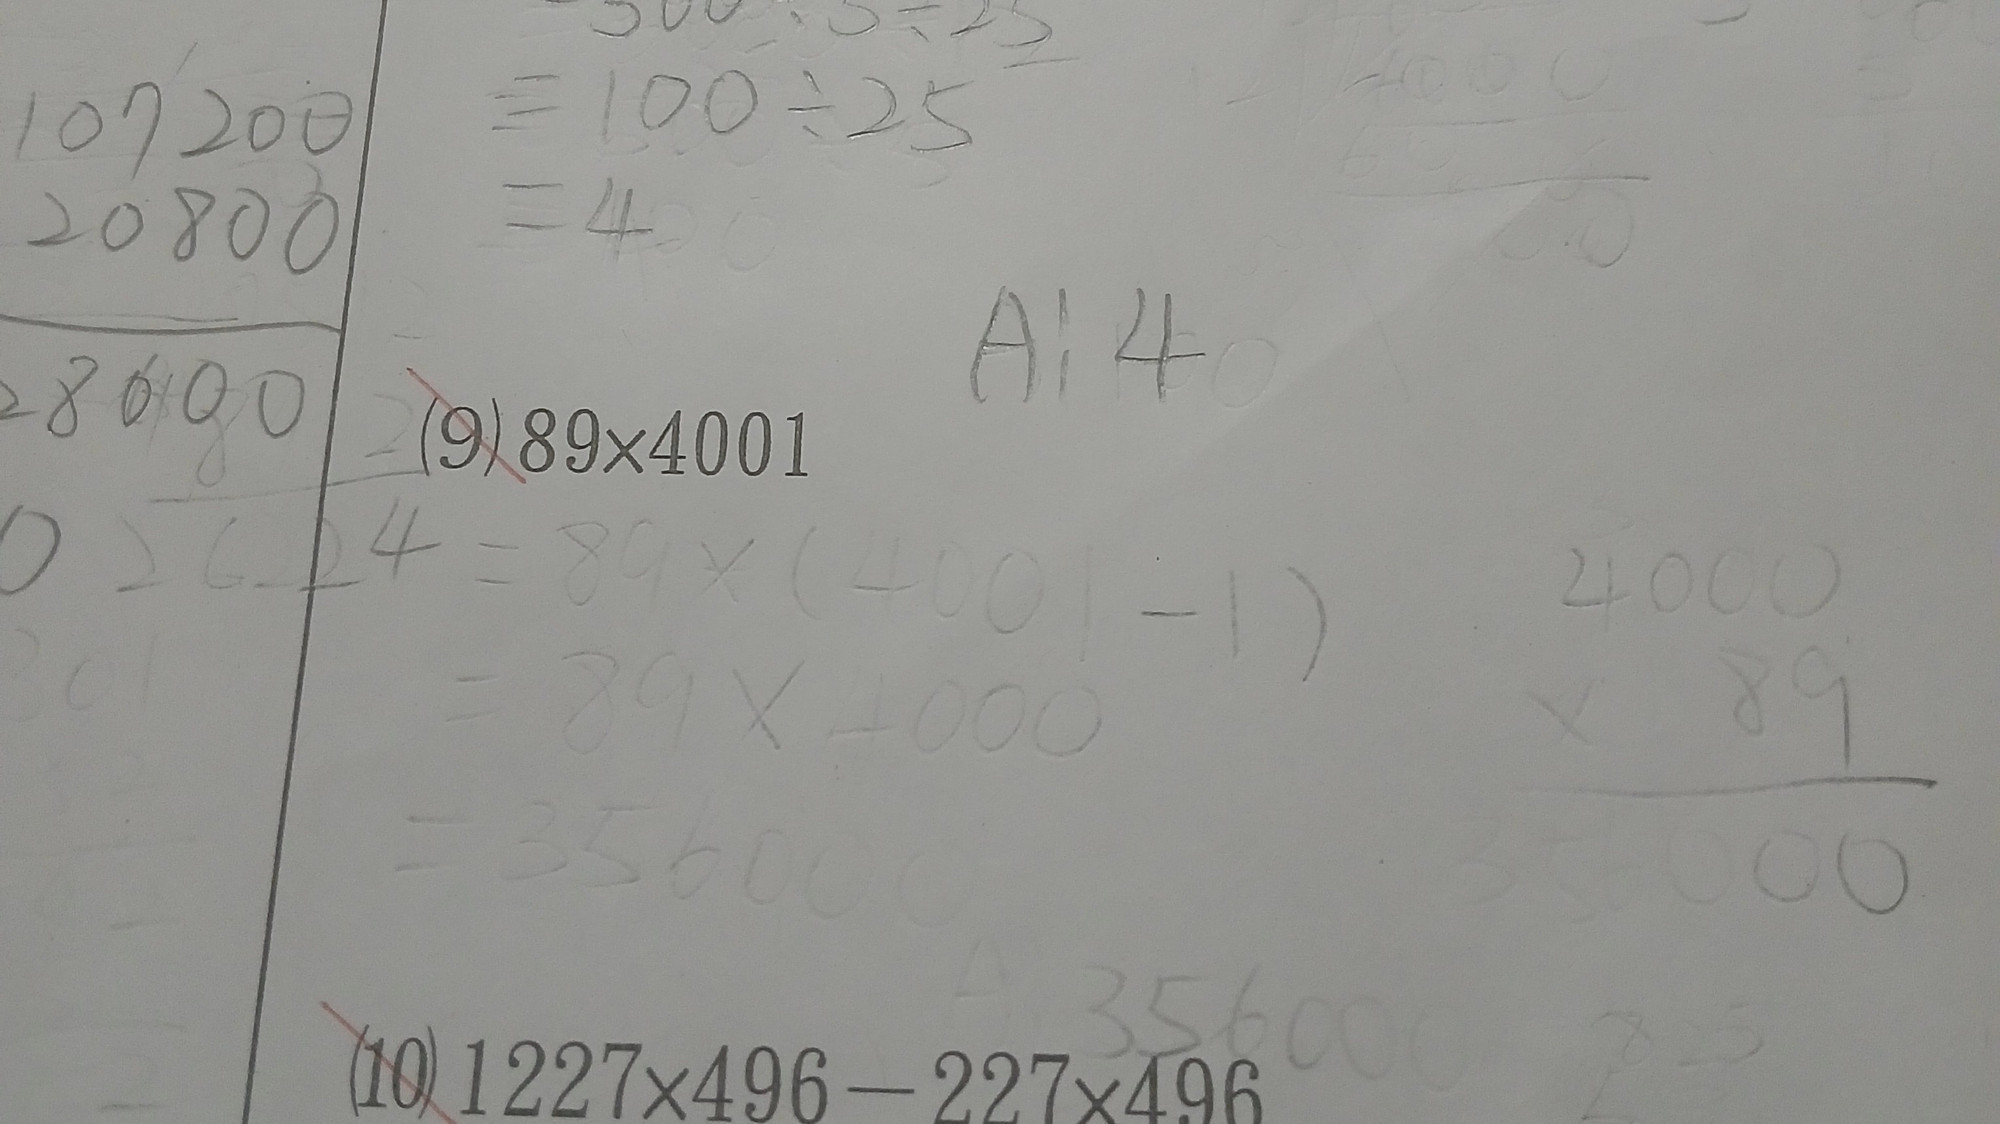 107200
20800
28600
02624
301
=500÷5÷25
=100÷25
=4
A:4
(9)89×4001
=89×(4001-1)
=89×4000
=356000
4000
× 89
356000
A:356000
(10)1227×496－227×496